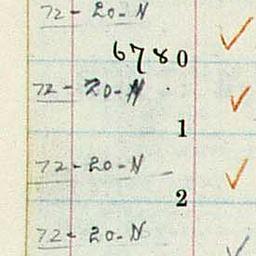 72 - 20 - N
6780
72 - 20 - N
1
72 - 20 - N
2
72 - 20 - N